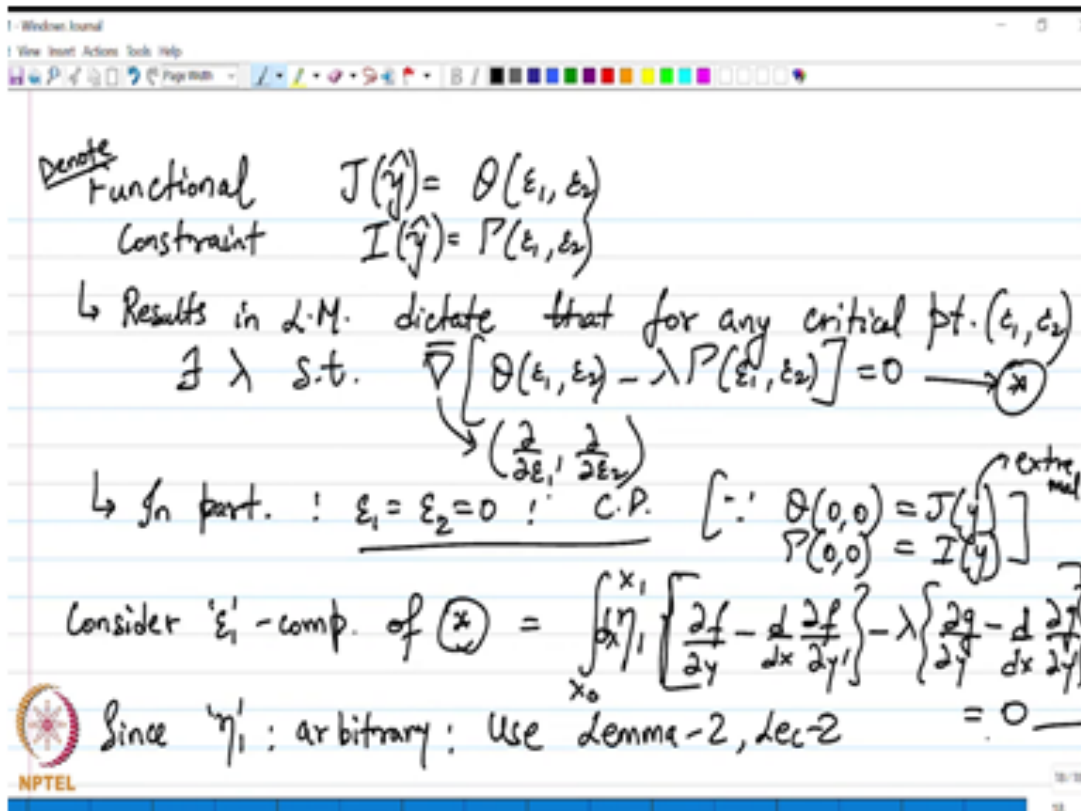 - Windows Journal
View Insert Actions Tools Help
Page Width B I
Denote
Functional J(ŷ) = Θ(ε₁, ε₂)
Constraint I(ŷ) = Γ(ε₁, ε₂)
↳ Results in L.M. dictate that for any critical pt. (ε₁, ε₂)
∃ λ s.t. ∇̄ [Θ(ε₁, ε₂) − λ Γ(ε₁, ε₂)] = 0 → (*)
(∂/∂ε₁, ∂/∂ε₂)
↳ In part. : ε₁ = ε₂ = 0 : C.P. [∵ Θ(0,0) = J(y) extremal
Γ(0,0) = I(y)]
Consider 'ε₁'-comp. of (*) = ∫_{x₀}^{x₁} dx η₁ [{∂f/∂y − d/dx ∂f/∂y'} − λ {∂g/∂y − d/dx ∂g/∂y'}
Since 'η₁' : arbitrary : Use Lemma-2, Lec-2 = 0
NPTEL